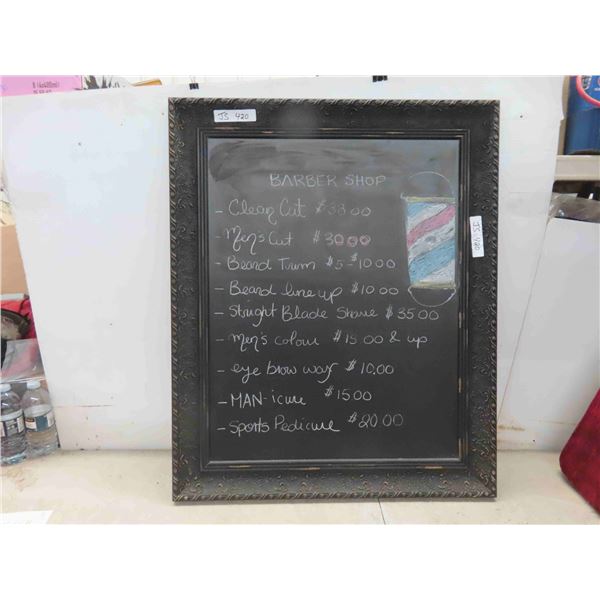 JS 420
BARBER SHOP
- Clean Cut $38.00
- Men's Cut $30.00
- Beard Trim $5-$10.00
- Beard line up $10.00
- Straight Blade Shave $35.00
- Men's colour $15.00 & up
- eye brow wax $10.00
- MAN-icure $15.00
- Sports Pedicure $20.00
JS 420